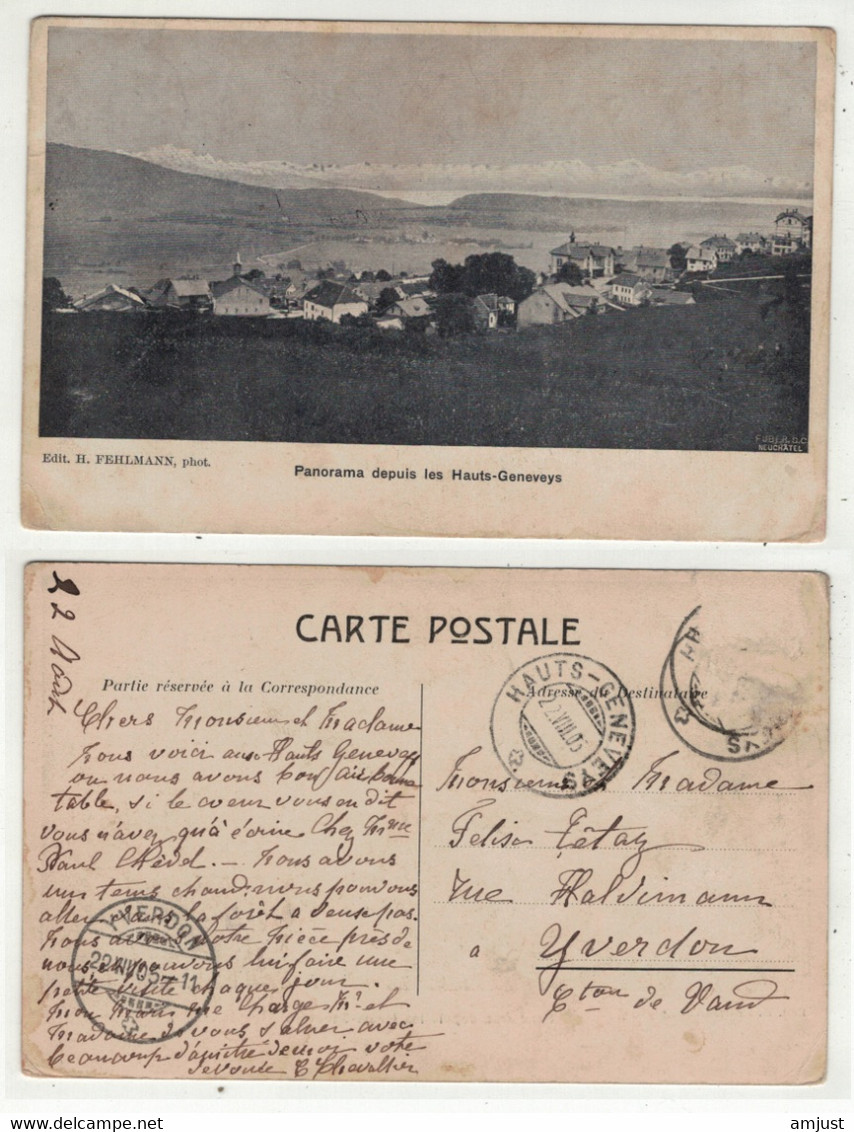 FUBER. D.C
NEUCHÂTEL
Edit. H. FEHLMANN, phot.
Panorama depuis les Hauts-Geneveys
22 Août
CARTE POSTALE
Partie réservée à la Correspondance
Adresse du Destinataire
HAUTS-GENEVEYS
22.VIII.05
Chers Monsieur et Madame
Nous voici aux Hauts Geneveys
ou nous avons bon air bonne
table, si le cœur vous en dit
vous n'avez qu'à écrire Chez Mme
Paul — Nous avons
un temps chaud. nous pouvons
aller dans la forêt a deux pas.
Nous avons notre Nièce près de
nous et pouvons lui faire une
petite visite chaque jour.
Mon Mari me charge Mr et
Madame de vous saluer avec
beaucoup d'amitié de moi votre
devouée C Chevallier
YVERDON
Monsieur Madame
Felix Têtaz
rue Haldimann
a Yverdon
Cton de Vaud
amjust